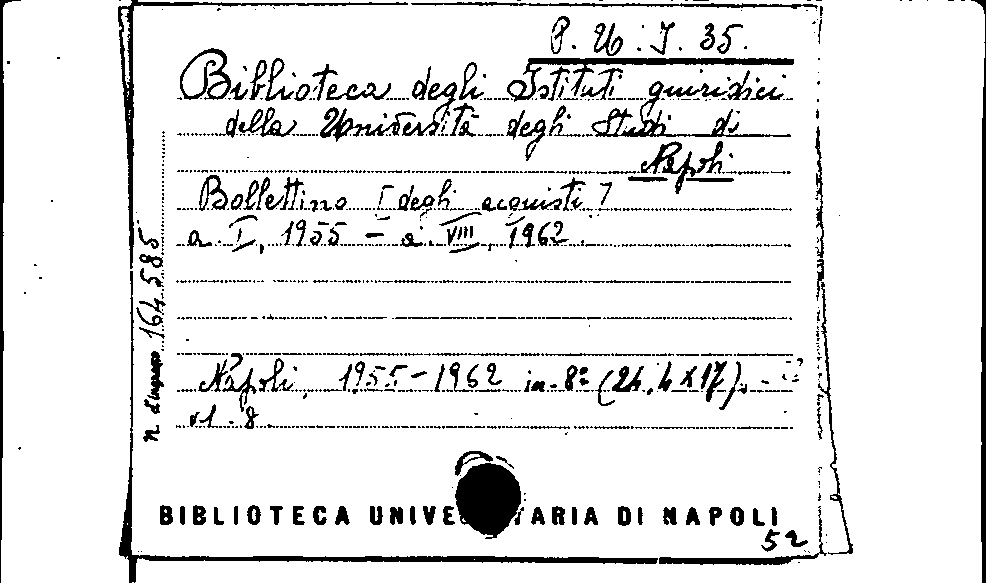 P. U. I. 35.
Biblioteca degli Istituti giuridici
della Università degli Studi di
Napoli
Bollettino [degli acquisti]
a. I, 1955 - a. VIII, 1962.
n. d'ingresso 164585
Napoli, 1955-1962 in-8° (24,4x17).-
v1.8.
BIBLIOTECA UNIVE TARIA DI NAPOLI
52